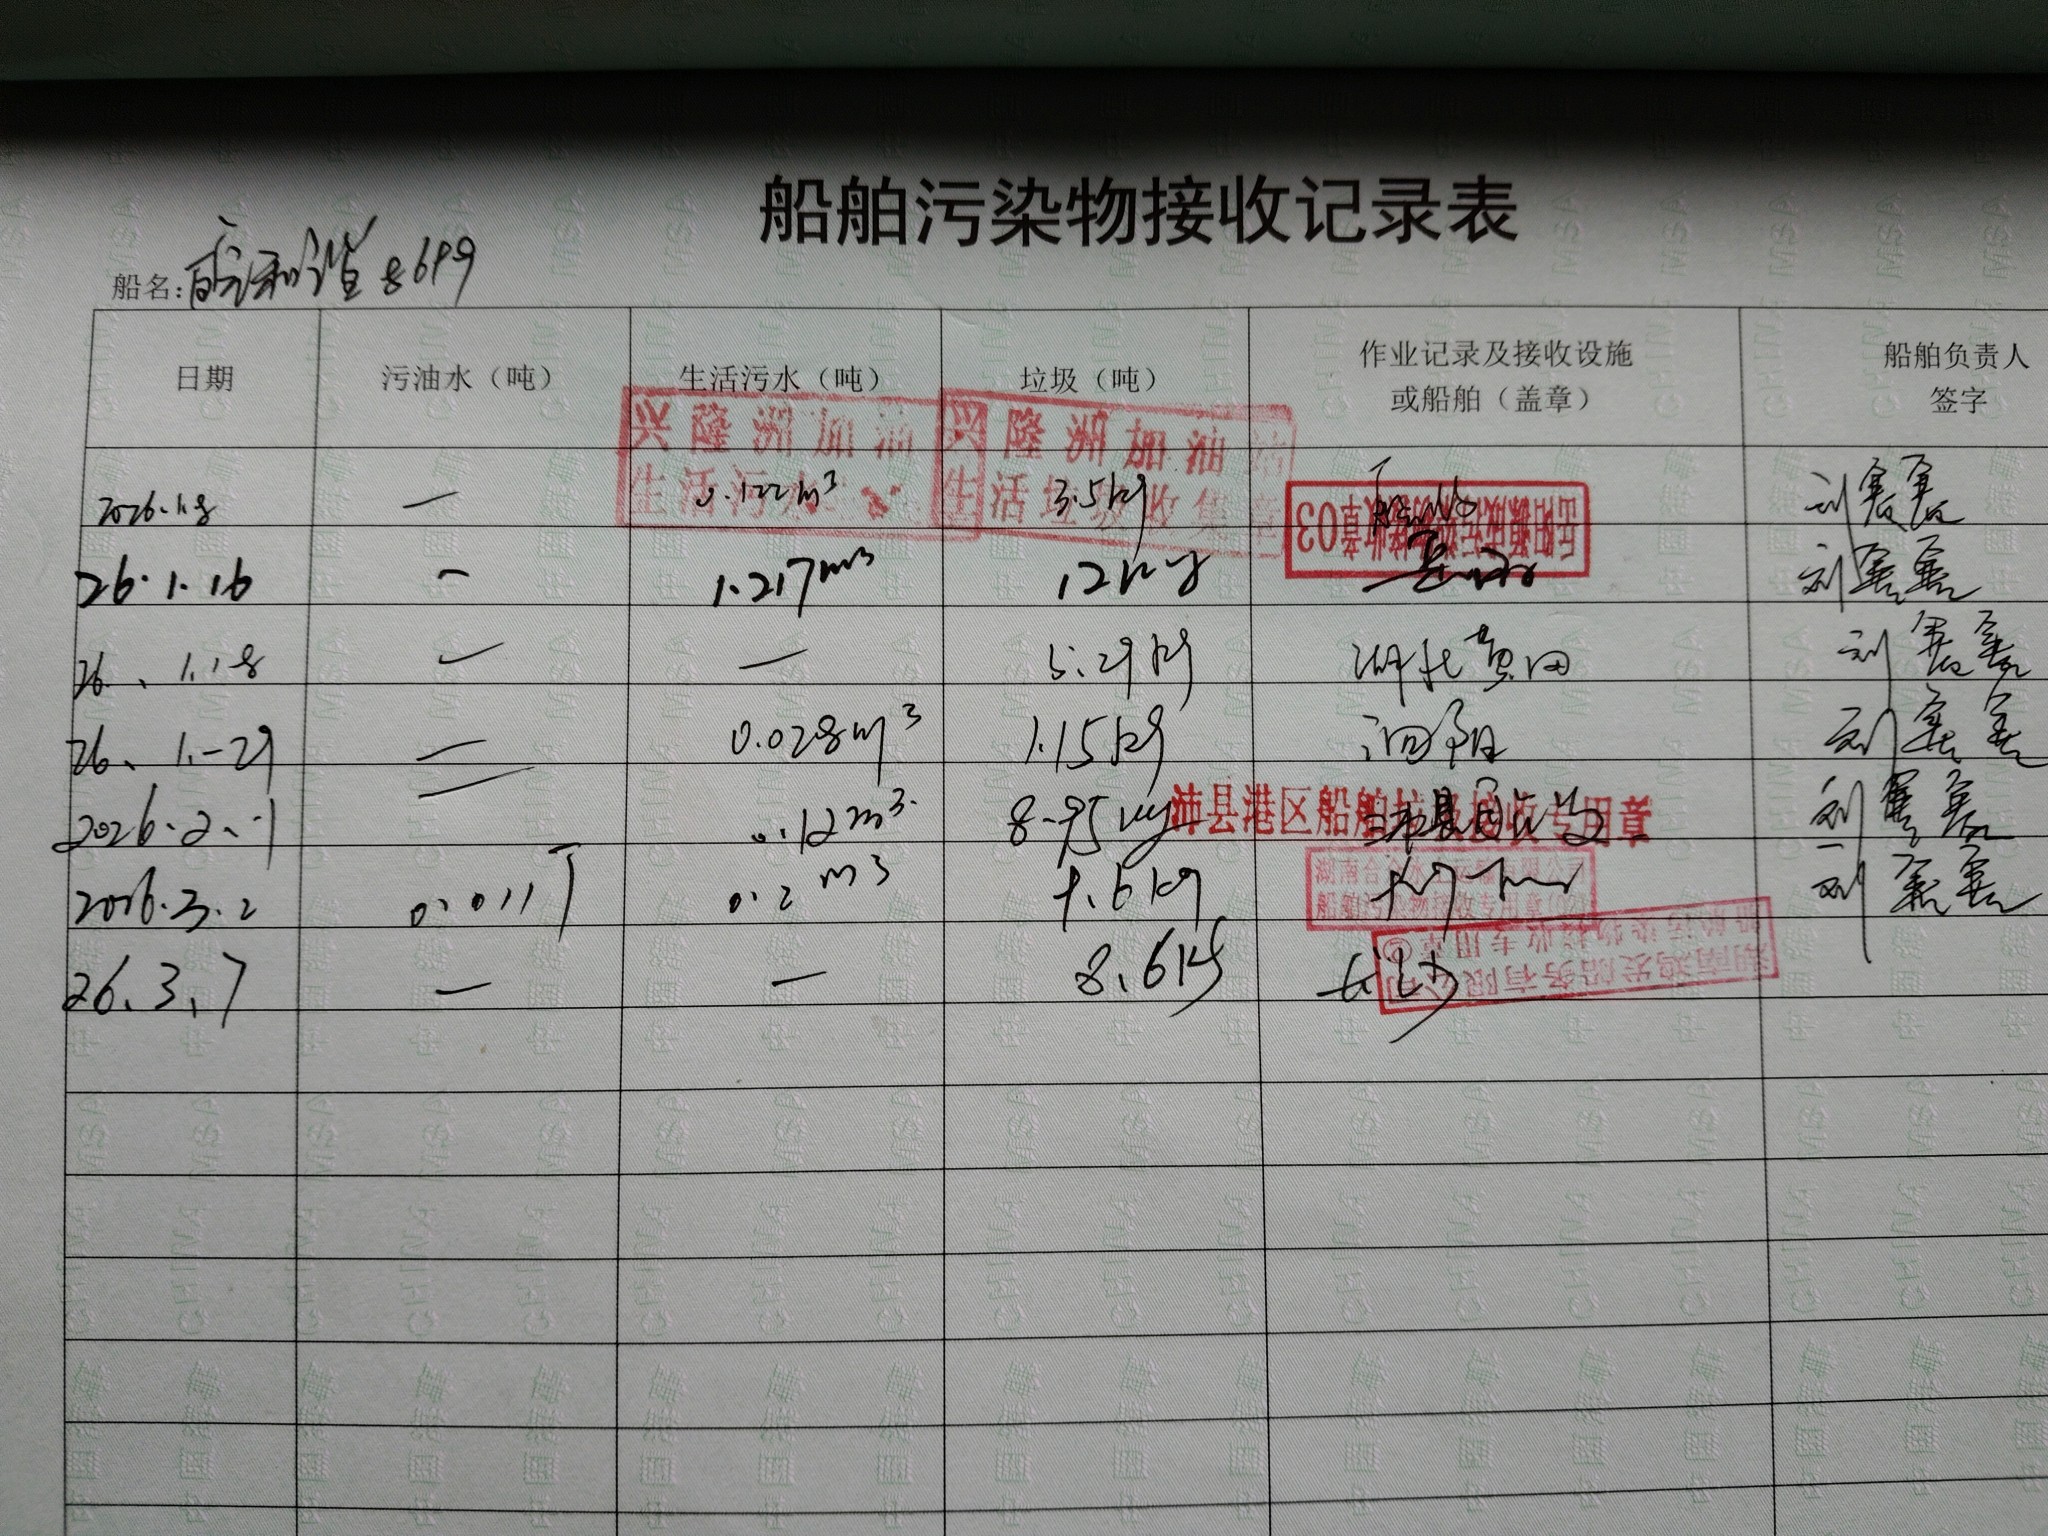 船舶污染物接收记录表
船名:皖和谐8619
日期 污油水（吨） 生活污水（吨） 垃圾（吨） 作业记录及接收设施或船舶（盖章） 船舶负责人签字
兴隆洲加油 兴隆洲加油站
生活污水 生活垃圾收集章
2026.1.8 — 0.122m³ 3.5kg 刘
26.1.16 — 1.217m³ 12kg 刘
26.1.18 — — 5.29kg 湖北黄田 刘
26.1-29 — 0.028m³ 1.15kg 泗阳 刘
2026.2.1 — 0.12m³ 8.95kg 沛县港区船舶垃圾接收专用章 刘
2026.3.2 0.011T 0.2m³ 1.6kg 刘
船舶污染物接收专用章
26.3.7 — — 8.6kg 长沙
湖南鸿发船务有限公司
船舶污染物接收专用章